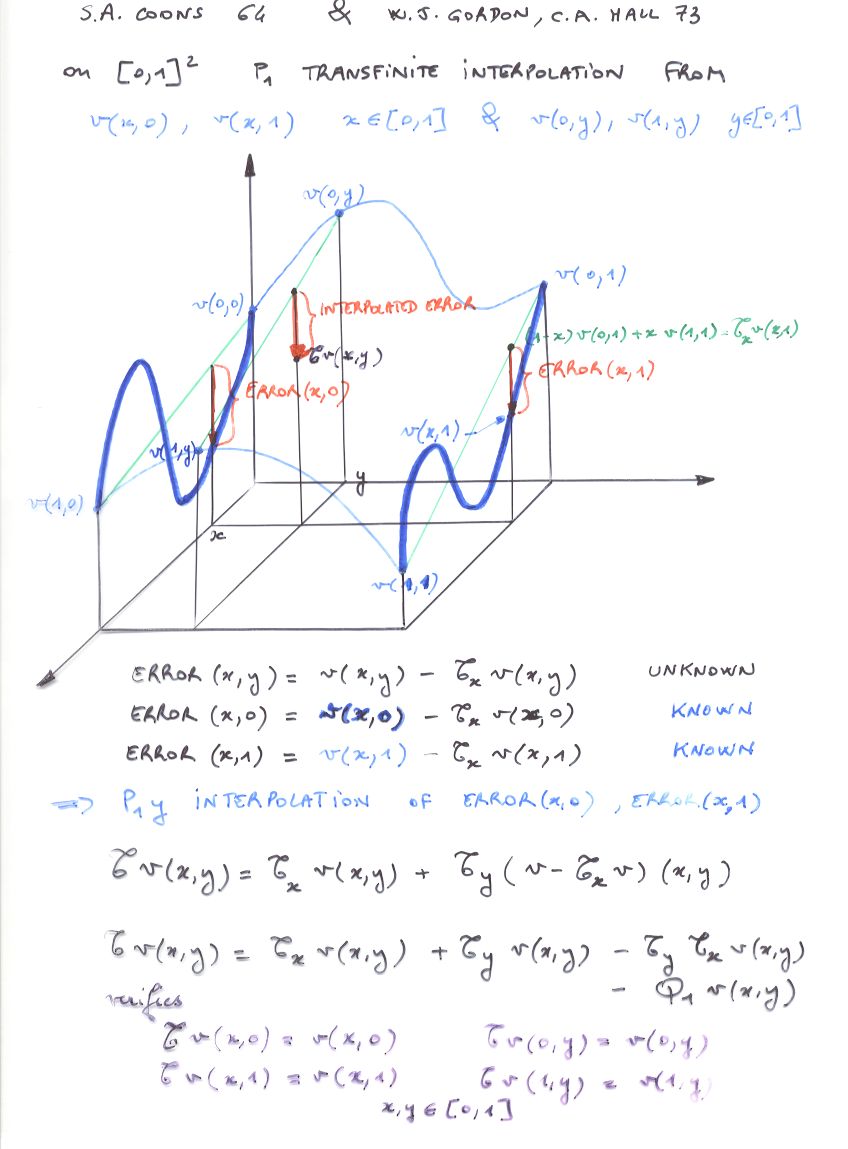 S.A. COONS 64 & W.J. GORDON, C.A. HALL 73
on [0,1]² P₁ TRANSFINITE INTERPOLATION FROM
v(x,0), v(x,1) x∈[0,1] & v(0,y), v(1,y) y∈[0,1]
v(0,y)
v(0,1)
v(0,0)
INTERPOLATED ERROR
(1-x)v(0,1)+x v(1,1)=𝒯ₓv(x,1)
𝒯v(x,y)
ERROR(x,1)
ERROR(x,0)
v(x,1)
v(1,y)
y
v(1,0)
x
v(1,1)
ERROR(x,y) = v(x,y) - 𝒯ₓ v(x,y) UNKNOWN
ERROR (x,0) = v(x,0) - 𝒯ₓ v(x,0) KNOWN
ERROR (x,1) = v(x,1) - 𝒯ₓ v(x,1) KNOWN
=> P₁ y INTERPOLATION OF ERROR(x,0), ERROR(x,1)
𝒯v(x,y) = 𝒯ₓ v(x,y) + 𝒯y (v-𝒯ₓv) (x,y)
𝒯v(x,y) = 𝒯ₓ v(x,y) + 𝒯y v(x,y) - 𝒯y 𝒯ₓ v(x,y)
- Q₁ v(x,y)
verifies
𝒯v(x,0) = v(x,0) 𝒯v(0,y) = v(0,y)
𝒯v(x,1) = v(x,1) 𝒯v(1,y) = v(1,y)
x,y ∈ [0,1]